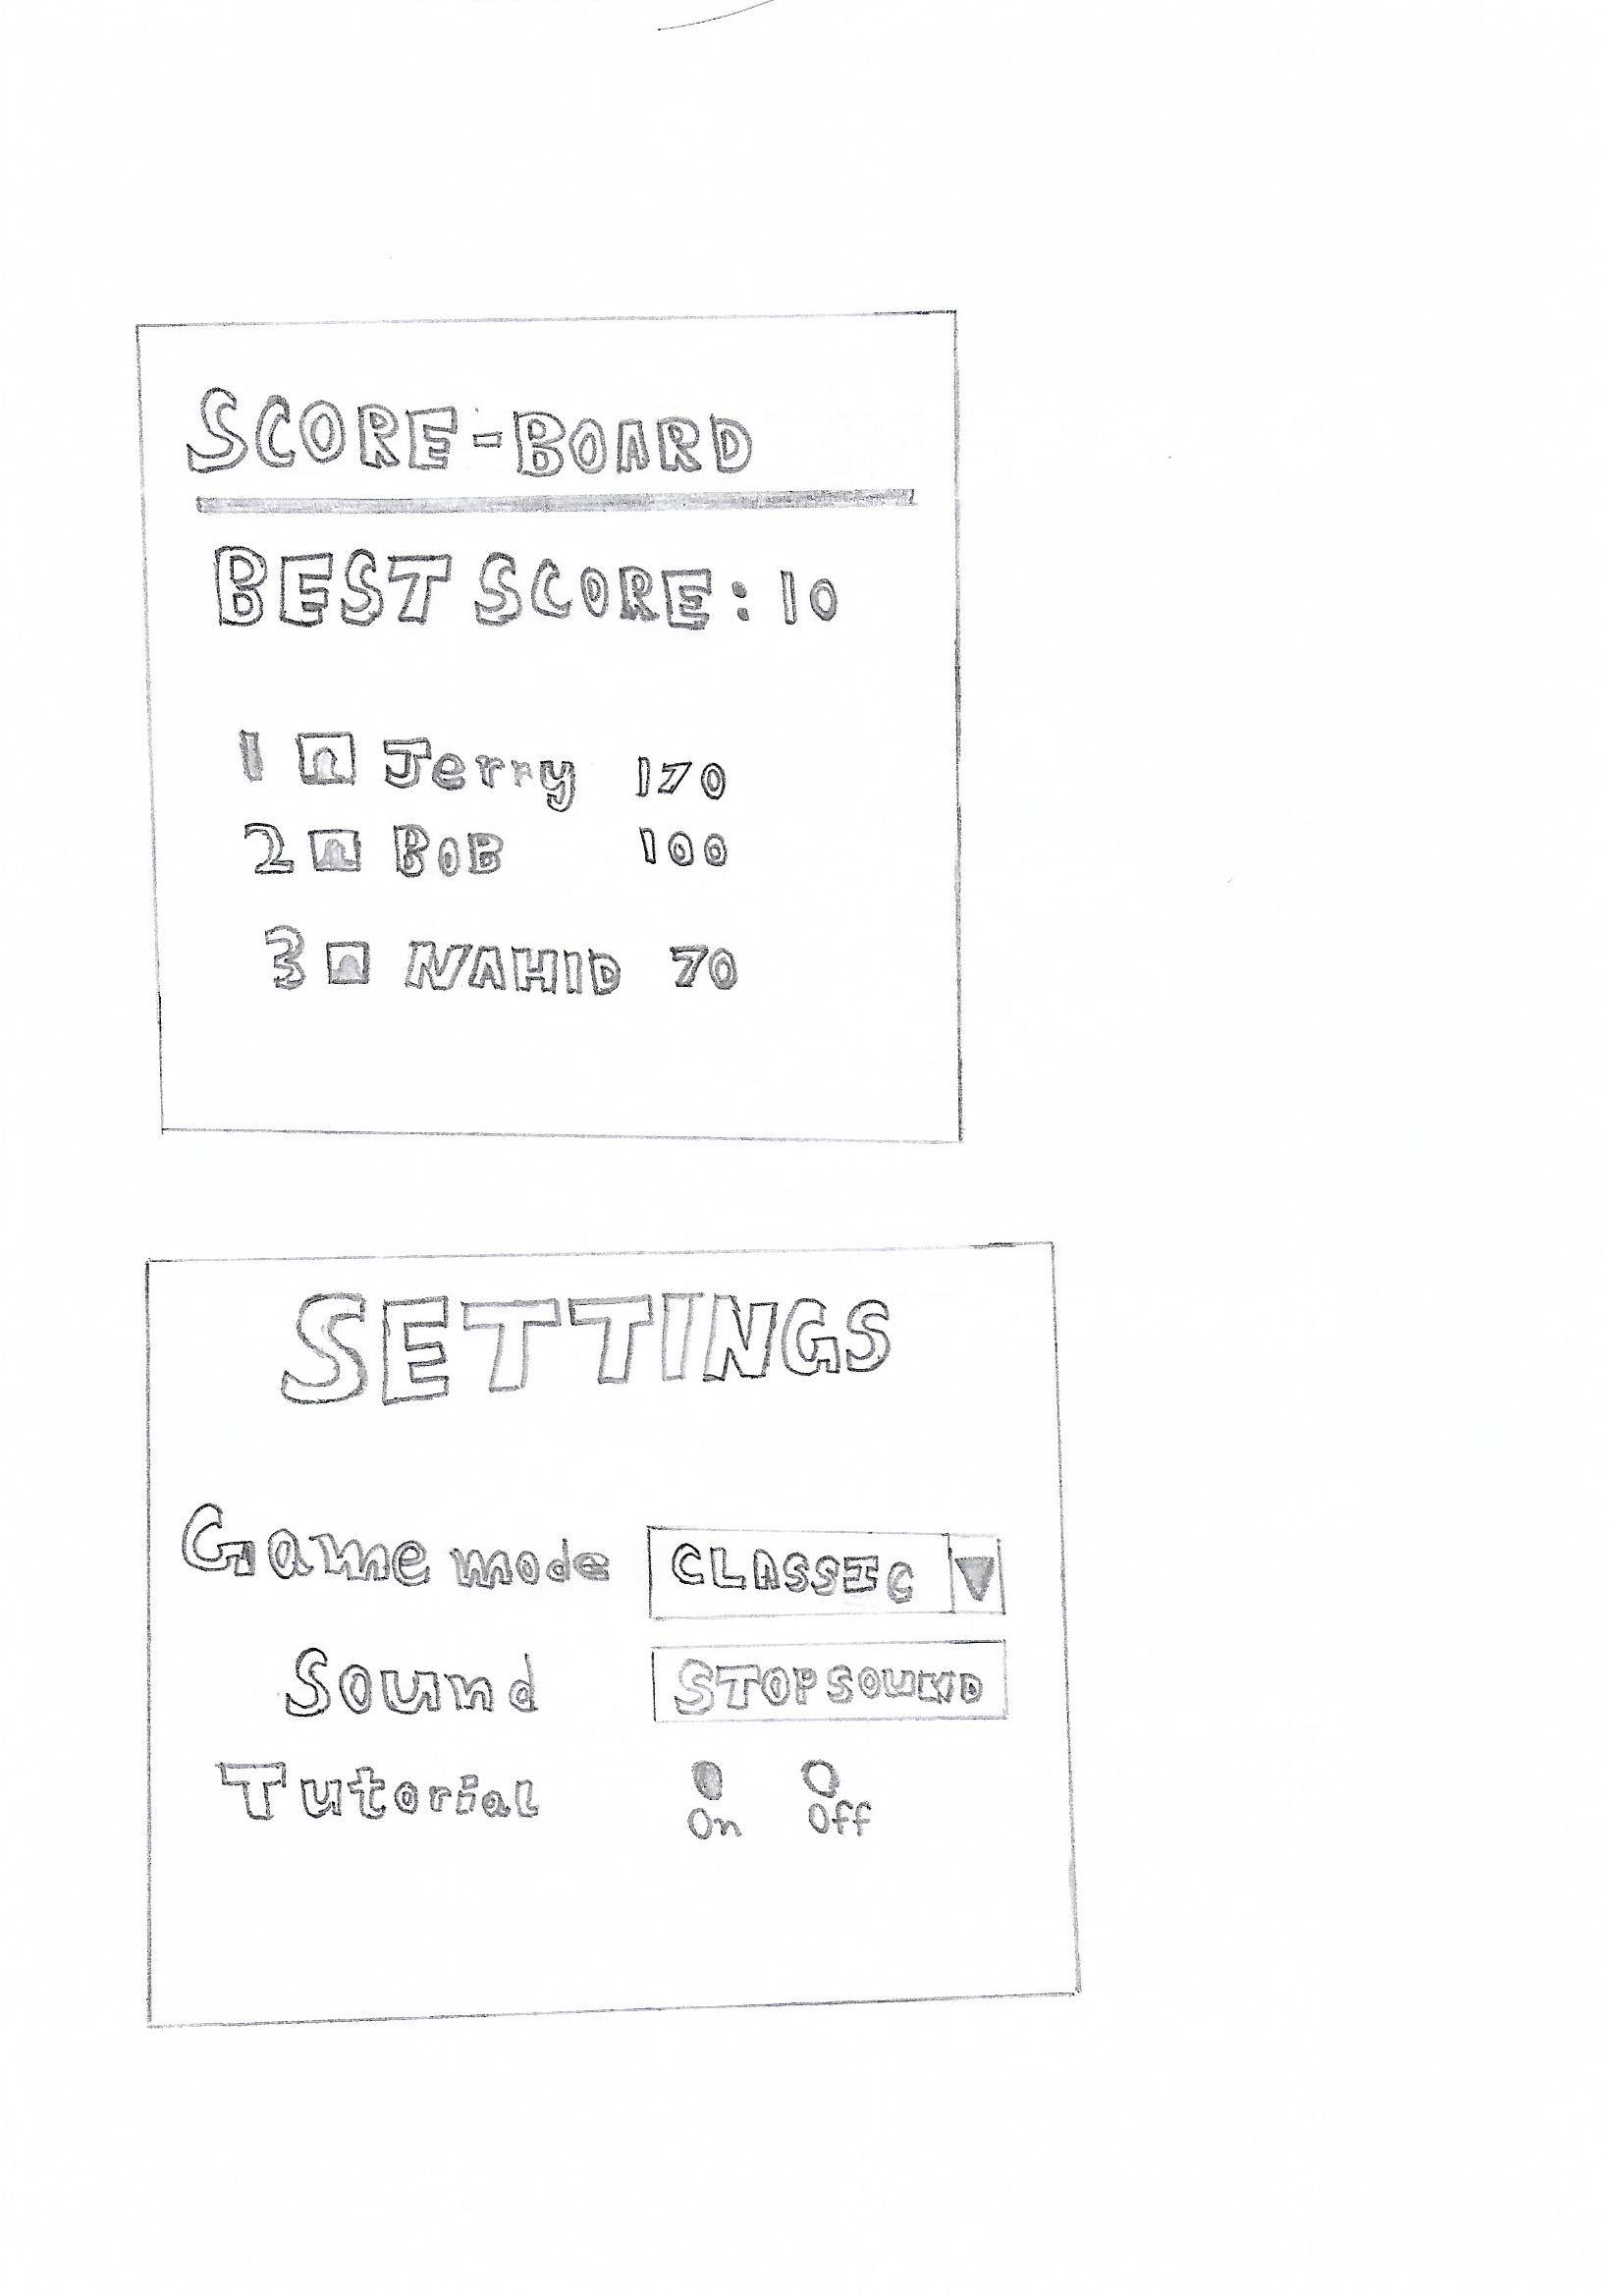 SCORE-BOARD
BEST SCORE: 10
1 Jerry 170
2 BOB 100
3 NAHID 70
SETTINGS
Game mode CLASSIC
Sound STOP SOUND
Tutorial On Off